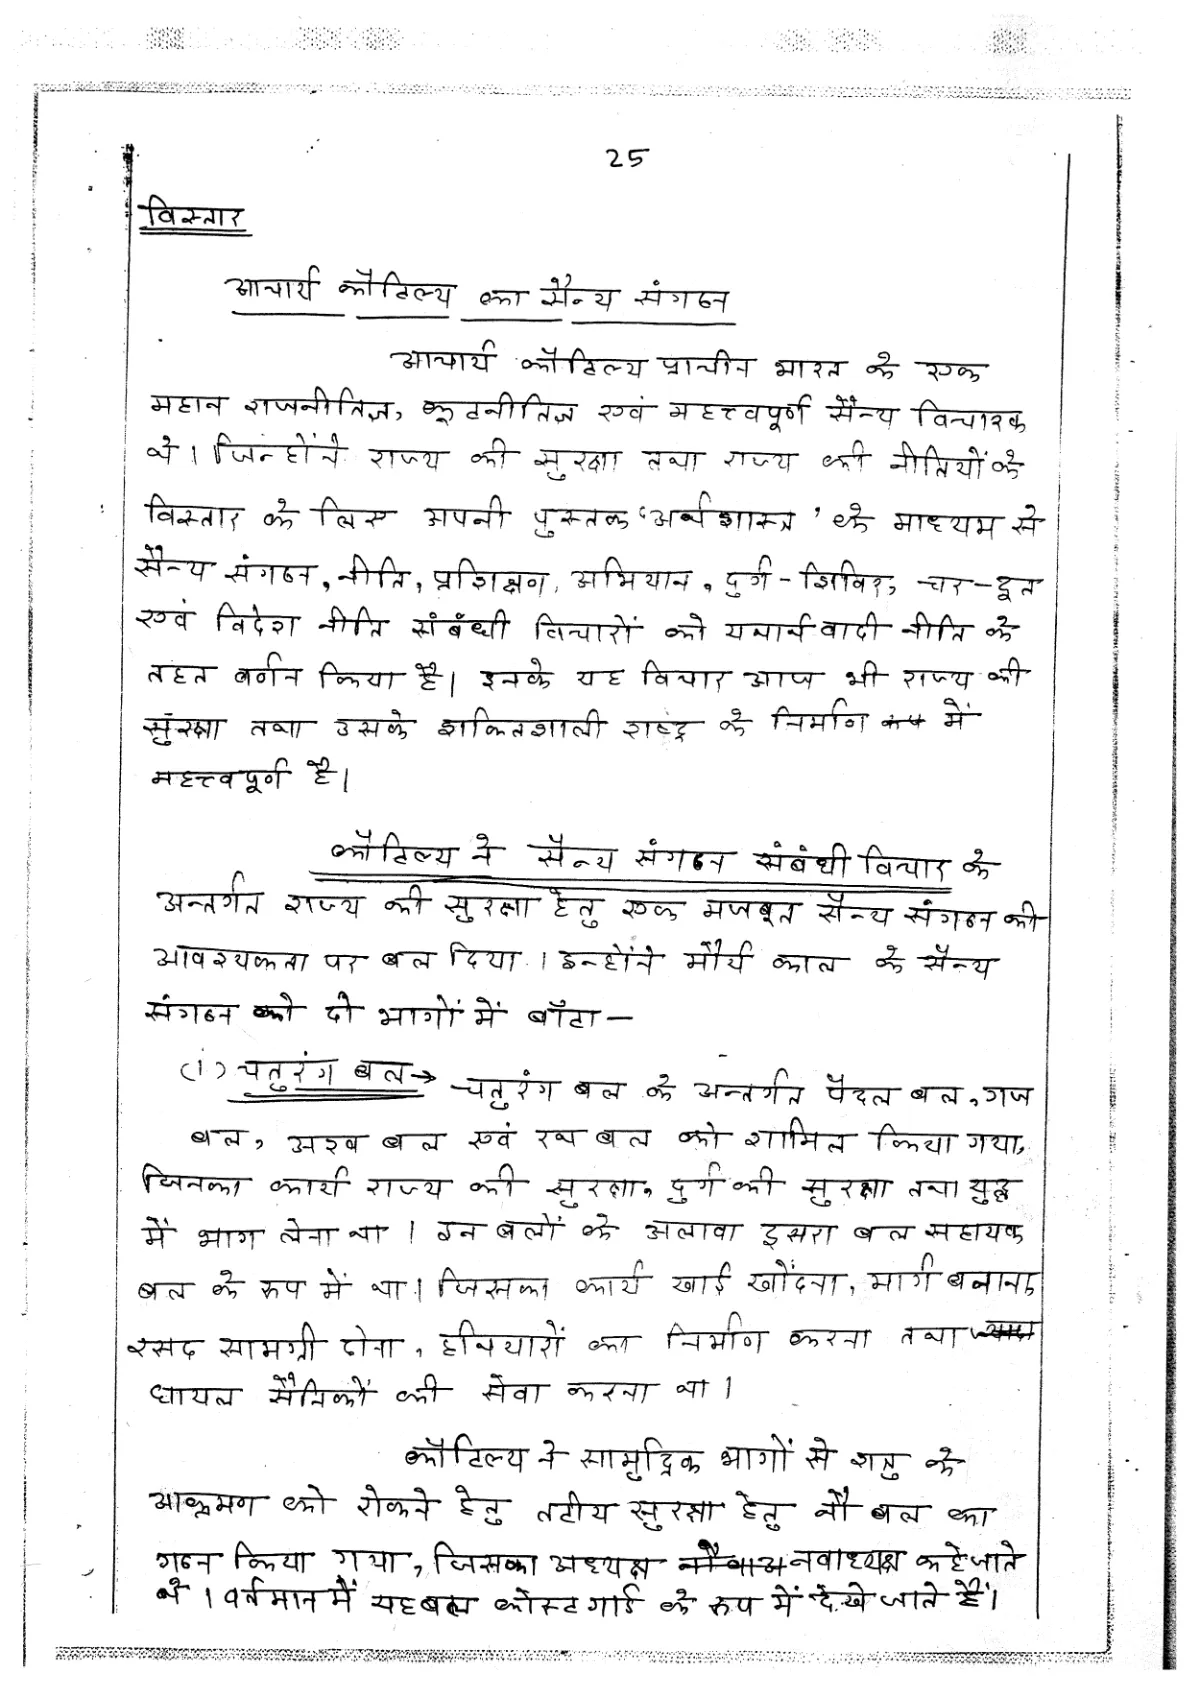 25
विस्तार
आचार्य कौटिल्य का सैन्य संगठन
आचार्य कौटिल्य प्राचीन भारत के एक
महान राजनीतिज्ञ, कूटनीतिज्ञ एवं महत्त्वपूर्ण सैन्य विचारक
थे। जिन्होंने राज्य की सुरक्षा तथा राज्य की नीतियों के
विस्तार के लिए अपनी पुस्तक 'अर्थशास्त्र' के माध्यम से
सैन्य संगठन, नीति, प्रशिक्षण, अभियान, दुर्ग-शिविर, चर-दूत
एवं विदेश नीति संबंधी विचारों को यथार्थवादी नीति के
तहत वर्णन किया है। इनके यह विचार आज भी राज्य की
सुरक्षा तथा उसके शक्तिशाली राष्ट्र के निर्माण में
महत्त्वपूर्ण है।
कौटिल्य ने सैन्य संगठन संबंधी विचार के
अन्तर्गत राज्य की सुरक्षा हेतु एक मजबूत सैन्य संगठन की
आवश्यकता पर बल दिया। इन्होंने मौर्य काल के सैन्य
संगठन को दो भागों में बाँटा –
(i) चतुरंग बल → चतुरंग बल के अन्तर्गत पैदल बल, गज
बल, अश्व बल एवं रथ बल को शामिल किया गया,
जिनका कार्य राज्य की सुरक्षा, दुर्ग की सुरक्षा तथा युद्ध
में भाग लेना था। इन बलों के अलावा दूसरा बल सहायक
बल के रूप में था। जिसका कार्य खाई खोंदना, मार्ग बनाना,
रसद सामग्री ढोना, हथियारों का निर्माण करना तथा
घायल सैनिकों की सेवा करना था।
कौटिल्य ने सामुद्रिक भागों से शत्रु के
आक्रमण को रोकने हेतु तटीय सुरक्षा हेतु नौ बल का
गठन किया गया, जिसका अध्यक्ष नवाध्यक्ष कहे जाते
थे। वर्तमान में यह बल कोस्ट गार्ड के रूप में देखे जाते हैं।